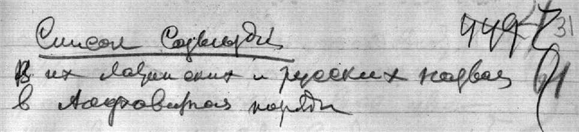 Список Созвездий 31
и их латинских и русских назван
в алфавитном порядке